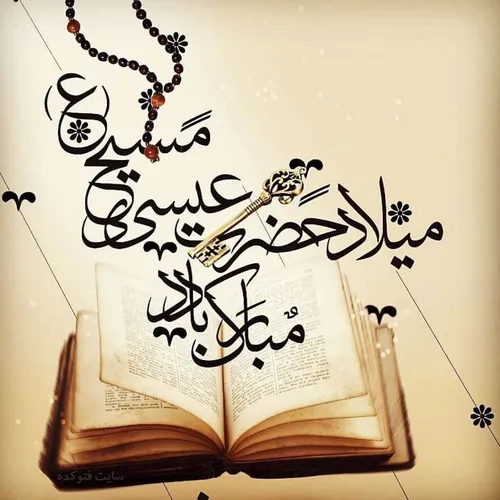 میلاد حضرت عیسی
مسیح (ع)
مبارک باد
سایت فتوکده